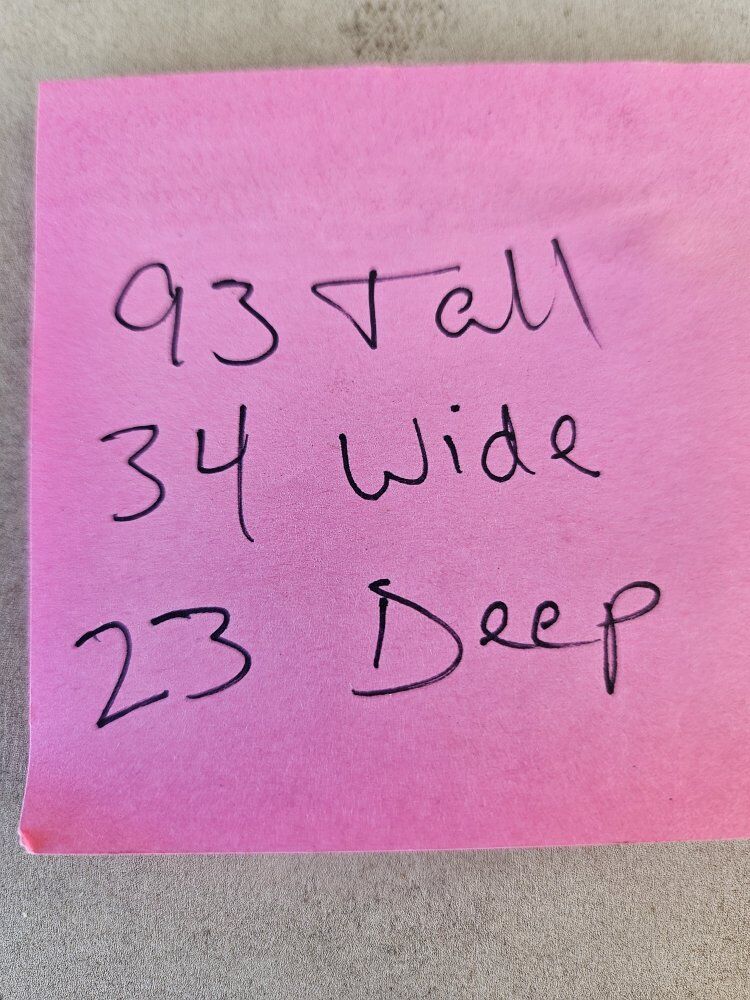 93 Tall
34 Wide
23 Deep